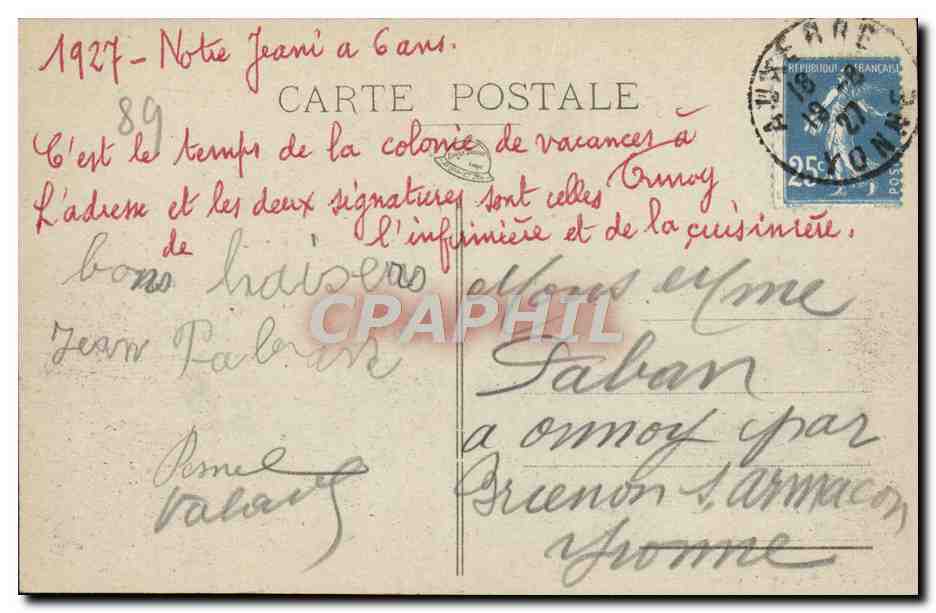 1927 - Notre Jeani a 6 ans.
89
CARTE POSTALE
C'est le temps de la colonie de vacances à
L'adresse et les deux signatures sont celles
de l'infirmière et de la cuisinière.
bons baisers
Jean Paban
Valard
Mons et Mme
Paban
a ormoy par
Brienon s. Armacon
Yvonne
REPUBLIQUE FRANÇAISE
25c
POSTES
AUXERRE
18
19 - 8
27
YONNE
CPAPHIL